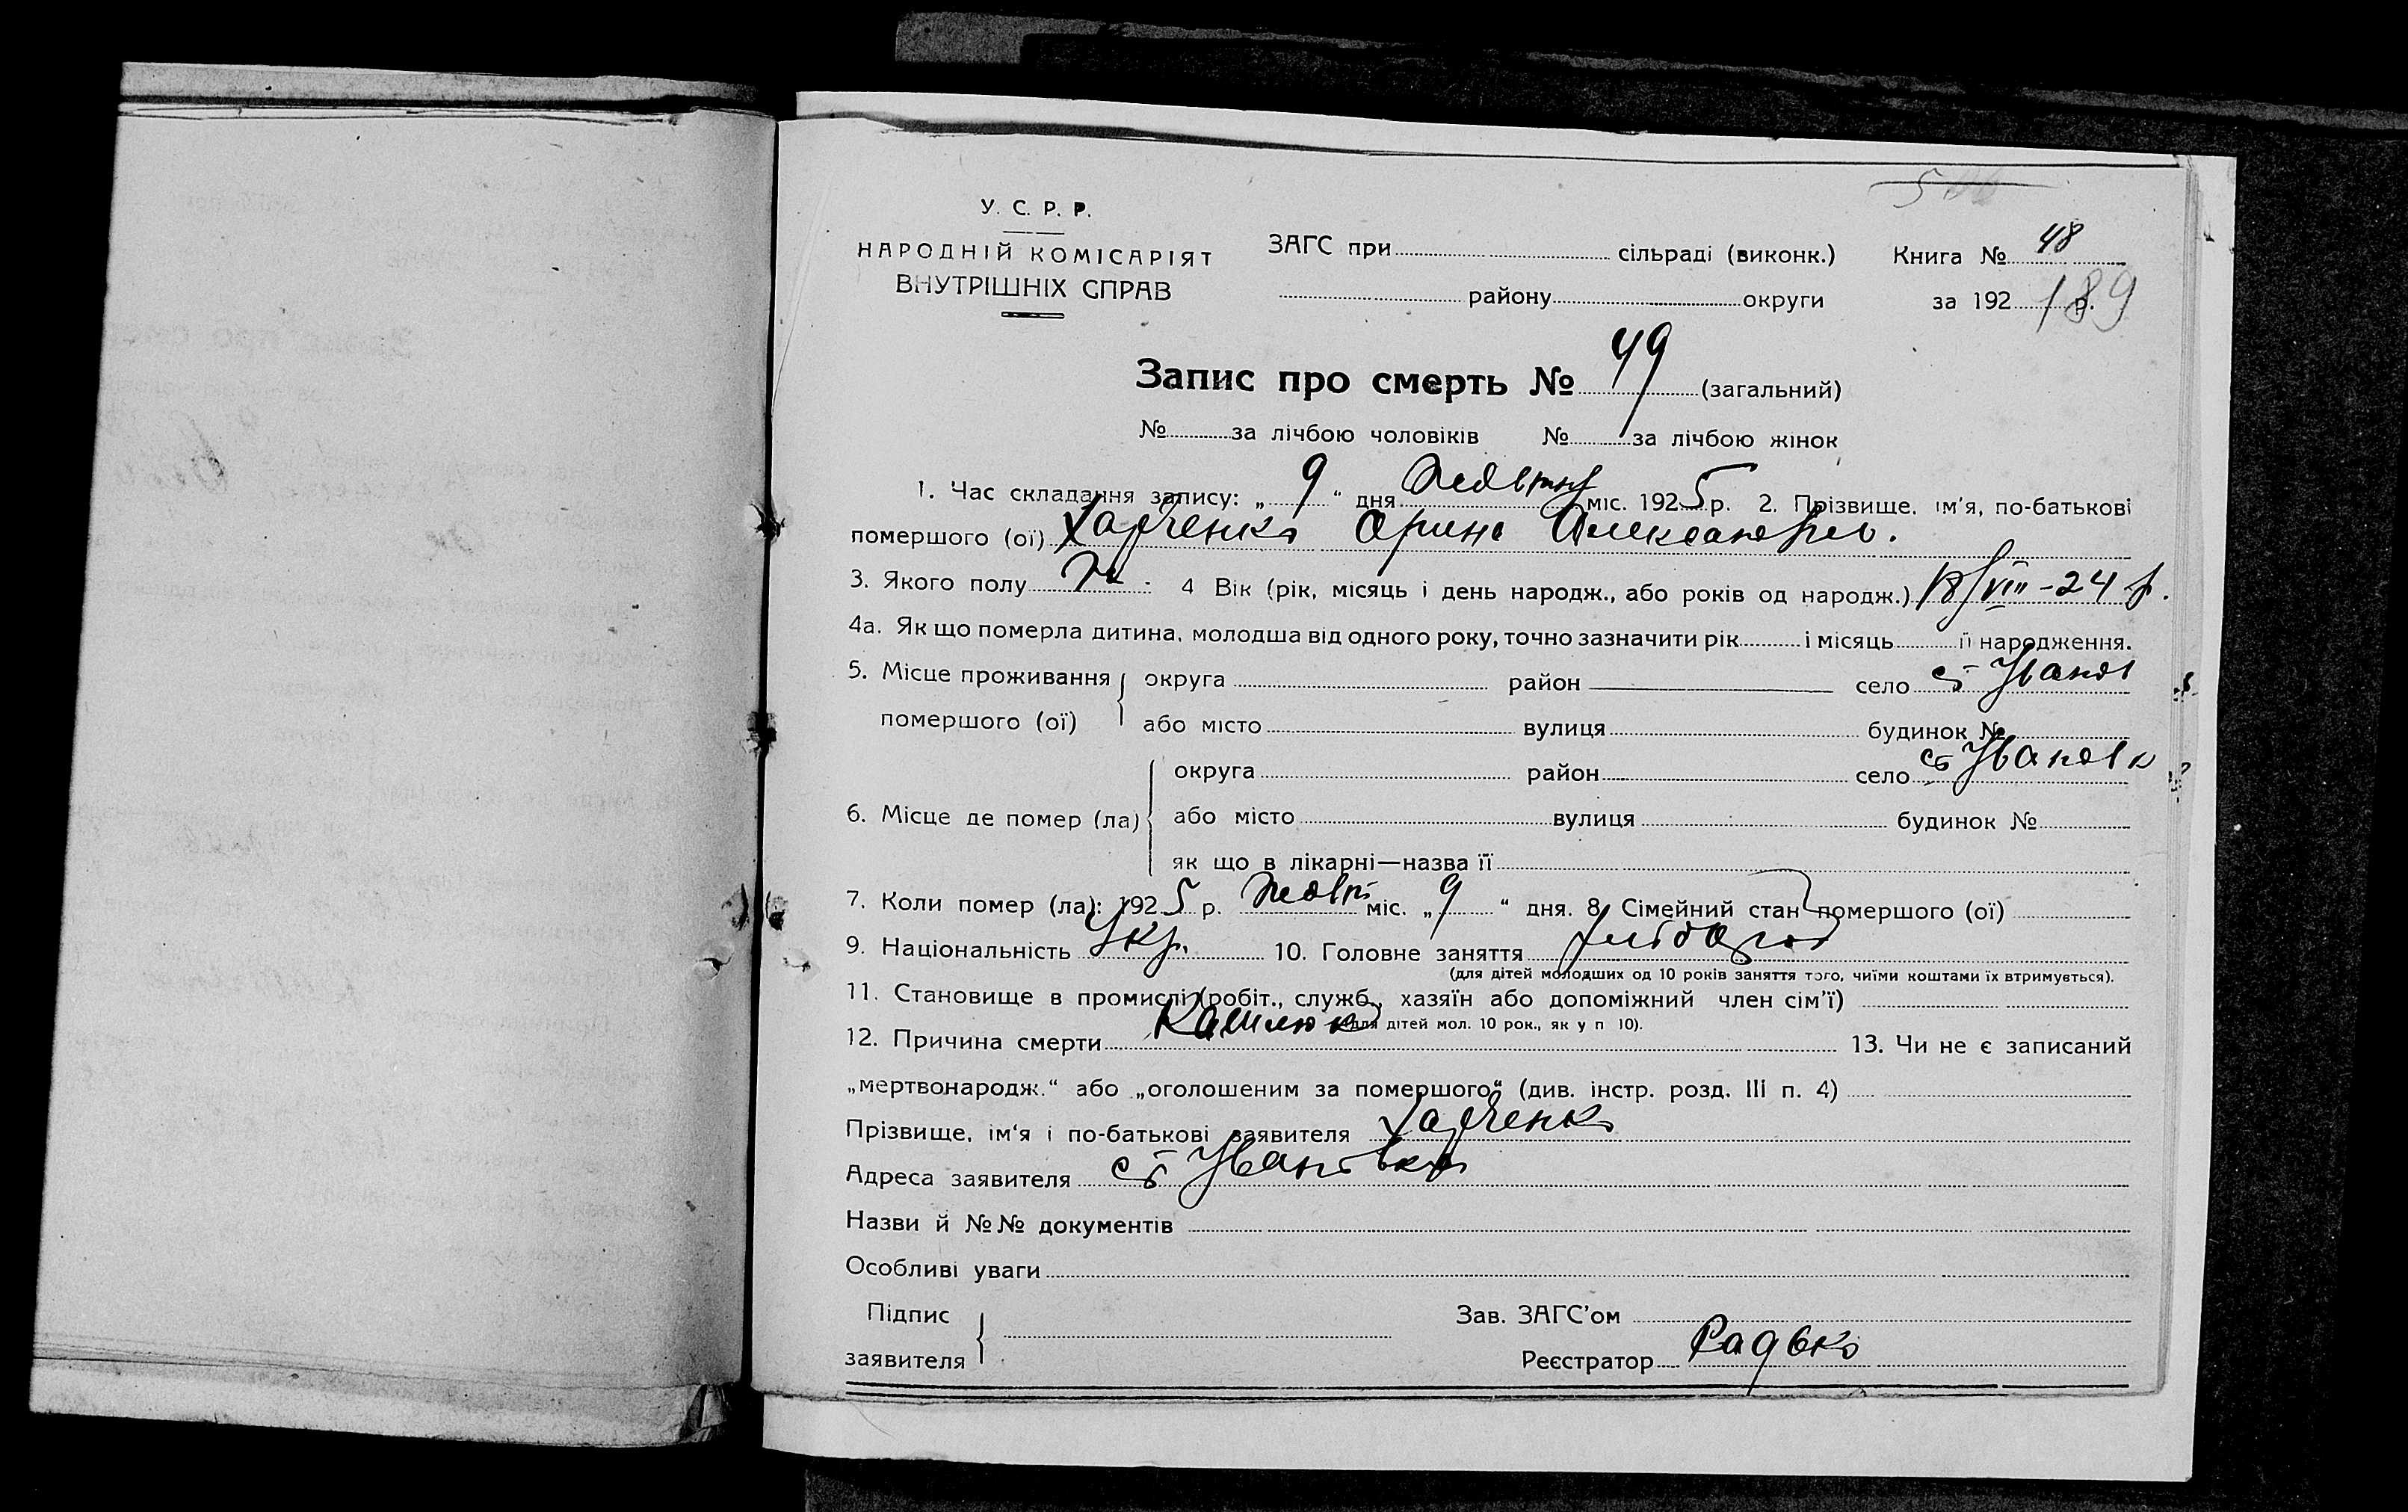 У. С. Р. Р.
НАРОДНІЙ КОМІСАРІЯТ
ВНУТРІШНІХ СПРАВ
ЗАГС при сільраді (виконк.) Книга № 48
району округи за 192 р. 189
Запис про смерть № 49 (загальний)
№ за лічбою чоловіків № за лічбою жінок
1. Час складання запису: „ 9 “ дня Жовтня міс. 1925 р. 2. Прізвище, ім'я, по-батькові
помершого (ої) Харченко Орина Александров.
3. Якого полу ж 4 Вік (рік, місяць і день народж., або років од народж.) 18/VIII-24 р.
4а. Як що померла дитина, молодша від одного року, точно зазначити рік і місяць її народження.
5. Місце проживання помершого (ої) округа район село Иванов
або місто вулиця будинок №
6. Місце де помер (ла) округа район село Ивановк
або місто вулиця будинок №
як що в лікарні—назва її
7. Коли помер (ла): 1925 р. Жовт міс. „ 9 “ дня. 8. Сімейний стан помершого (ої)
9. Національність Укр. 10. Головне заняття
(для дітей молодших од 10 років заняття того, чиїми коштами їх втримується).
11. Становище в промислі (робіт., служб., хазяїн або допоміжний член сім'ї)
(для дітей мол. 10 рок., як у п 10).
12. Причина смерти Кашлюк 13. Чи не є записаний
„мертвонародж.“ або „оголошеним за помершого“ (див. інстр. розд. III п. 4)
Прізвище, ім'я і по-батькові заявителя Харченко
Адреса заявителя Ивановка
Назви й №№ документів
Особливі уваги
Підпис заявителя
Зав. ЗАГС'ом
Реєстратор Радько